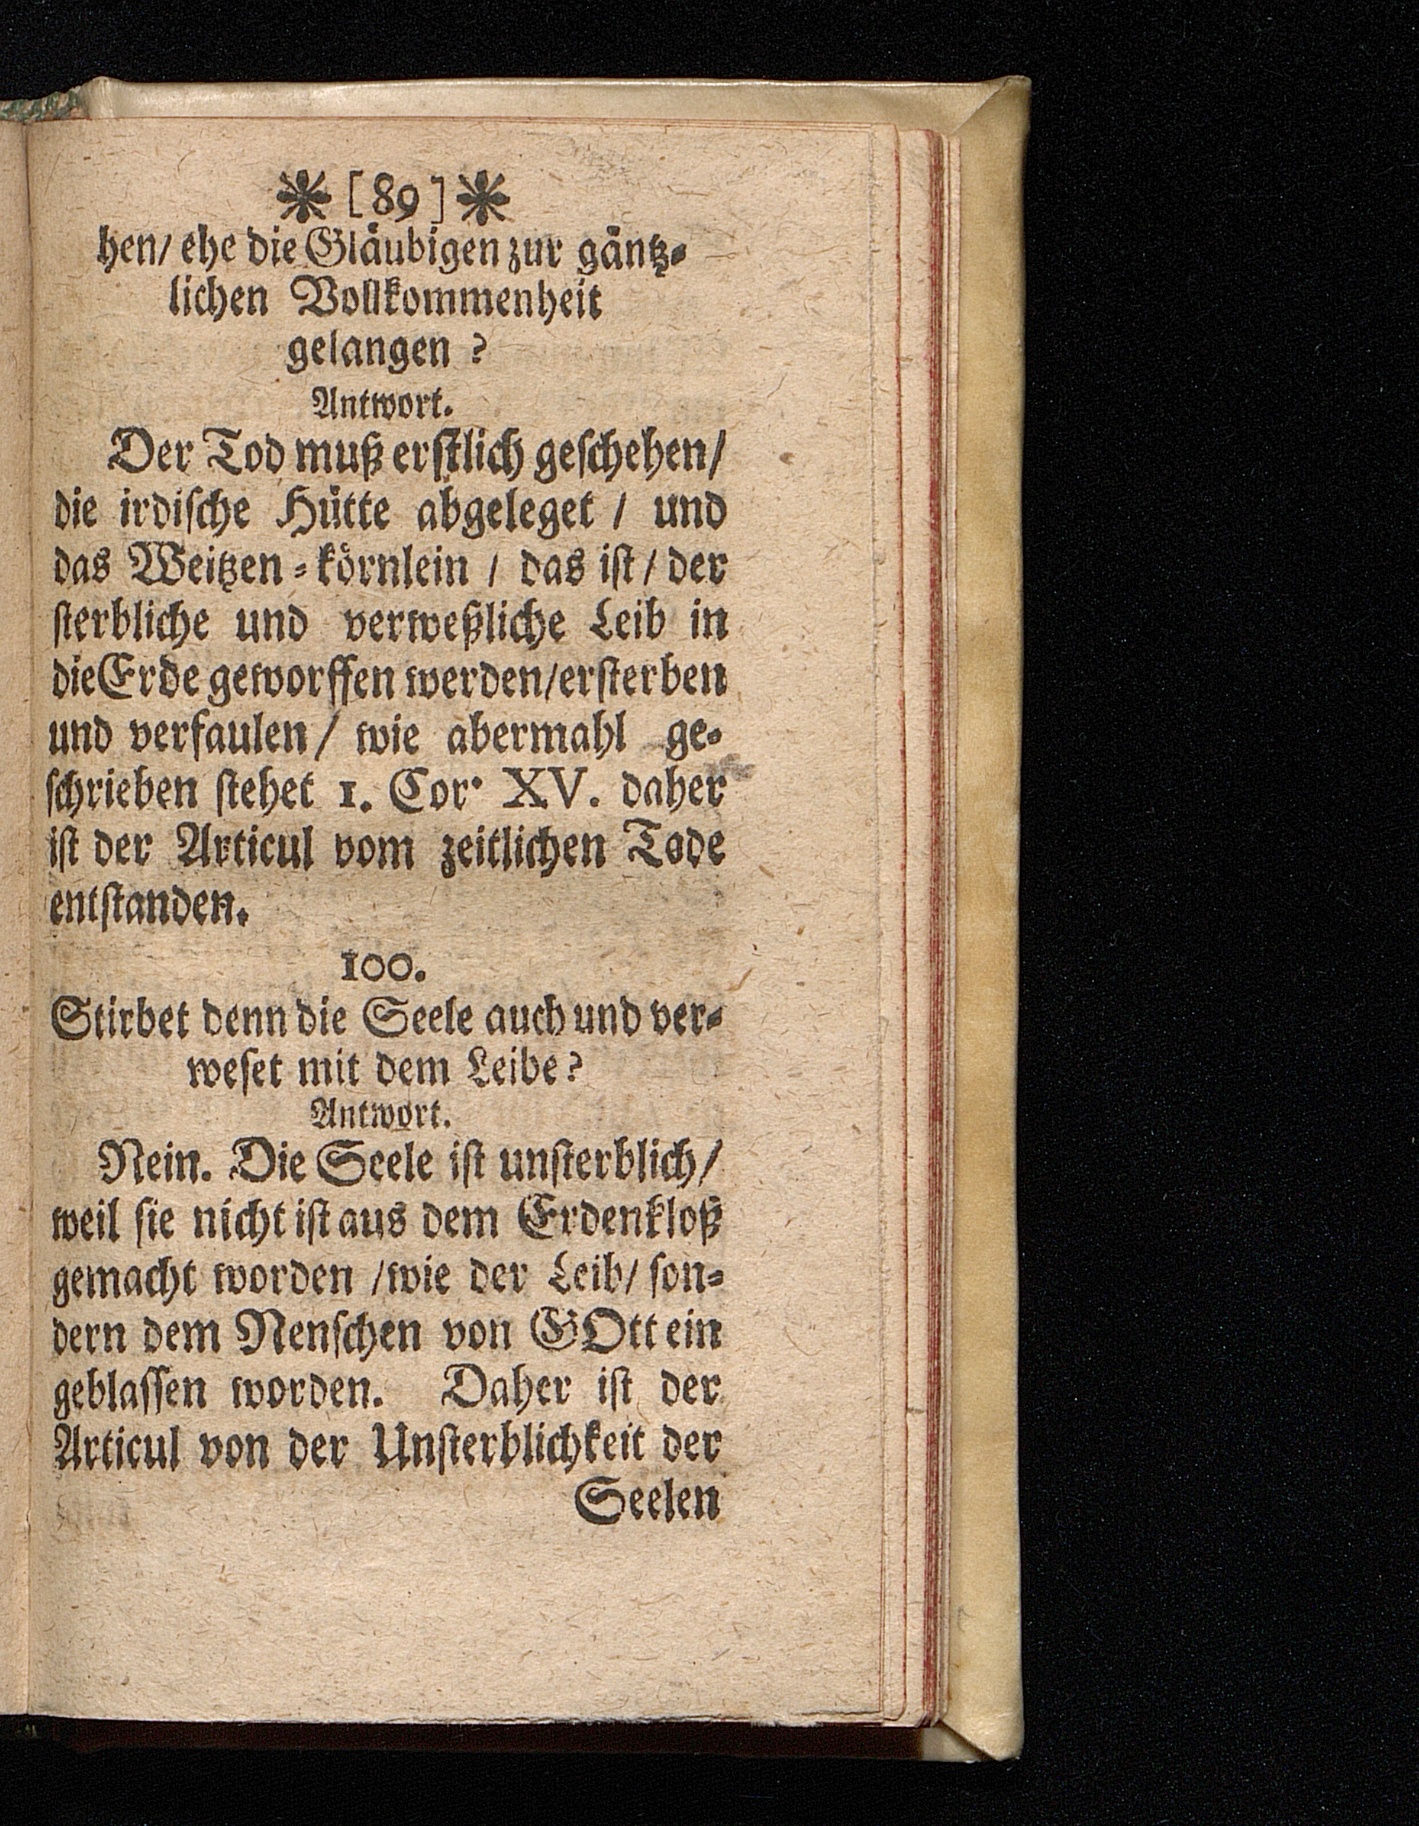 ❋ [ 89 ] ❋
hen/ ehe die Gläubigen zur gäntz-
lichen Vollkommenheit
gelangen ?
Antwort.
Der Tod muß erstlich geschehen/
die irdische Hütte abgeleget / und
das Weitzen-körnlein / das ist / der
sterbliche und verweßliche Leib in
die Erde geworffen werden/ersterben
und verfaulen/ wie abermahl ge-
schrieben stehet 1. Cor. XV. daher
ist der Articul vom zeitlichen Tode
entstanden.
100.
Stirbet denn die Seele auch und ver-
weset mit dem Leibe?
Antwort.
Nein. Die Seele ist unsterblich/
weil sie nicht ist aus dem Erdenkloß
gemacht worden /wie der Leib/ son-
dern dem Nenschen von GOtt ein
geblassen worden. Daher ist der
Articul von der Unsterblichkeit der
Seelen